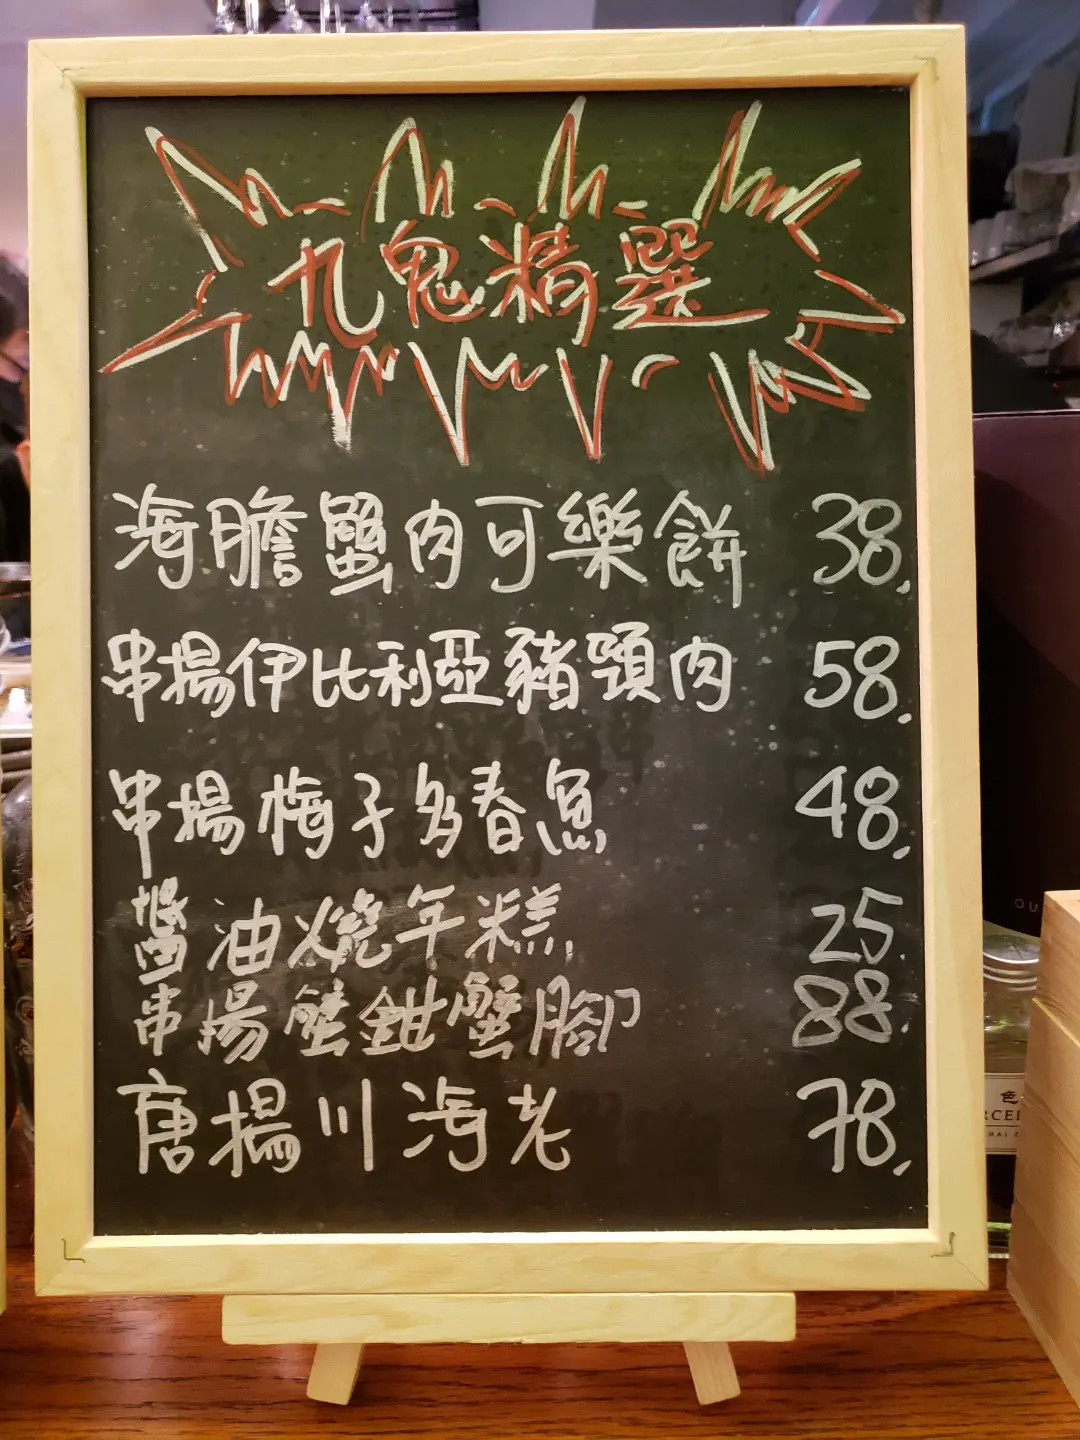 九鬼精選
海膽蟹肉可樂餅 38.
串揚伊比利亞豬頸肉 58.
串揚梅子多春魚 48.
醬油燒年糕 25.
串揚蟹鉗蟹腳 88.
唐揚川海老 78.
OU
色
RCE
HAI